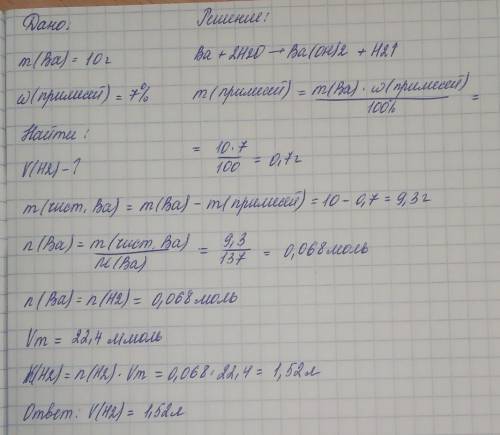 Дано: Решение:
m(Ba) = 10г Ba + 2H2O → Ba(OH)2 + H2↑
ω(примесей) = 7% m(примесей) = m(Ba) · ω(примесей) / 100% =
Найти:
V(H2) - ? = 10·7 / 100 = 0,7г
m(чист. Ba) = m(Ba) - m(примесей) = 10 - 0,7 = 9,3г
n(Ba) = m(чист. Ba) / M(Ba) = 9,3 / 137 = 0,068 моль
n(Ba) = n(H2) = 0,068 моль
Vm = 22,4 л/моль
V(H2) = n(H2) · Vm = 0,068 · 22,4 = 1,52л
Ответ: V(H2) = 1,52л